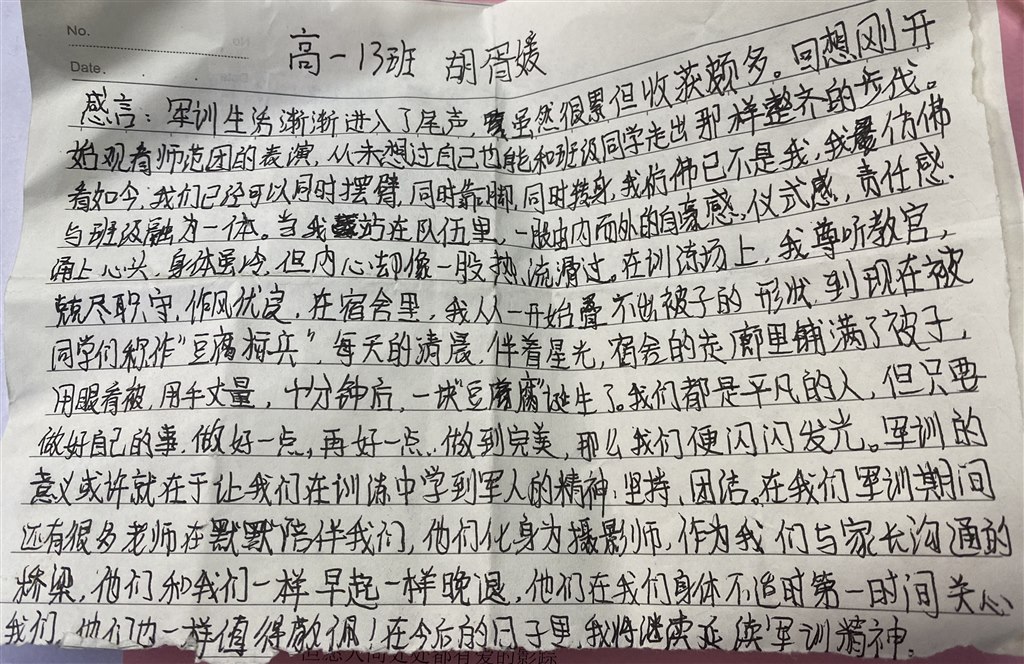 No.
Date.
高一13班 胡胥媛
感言：军训生活渐渐进入了尾声，虽然很累但收获颇多。回想刚开
始观看师范团的表演，从未想过自己也能和班级同学走出那样整齐的步伐。
看如今，我们已经可以同时摆臂，同时靠脚，同时转身，我仿佛已不是我，我仿佛
与班级融为一体。当我站在队伍里，一股由内而外的自豪感，仪式感，责任感.
涌上心头，身体虽冷，但内心却像一股热流滑过。在训练场上，我尊听教官，
兢尽职守，作风优良，在宿舍里，我从一开始叠不出被子的形状，到现在被
同学们称作“豆腐标兵”，每天的清晨，伴着星光，宿舍的走廊里铺满了被子，
用眼看被，用手丈量，十分钟后，一块“豆腐”诞生了。我们都是平凡的人，但只要
做好自己的事，做好一点，再好一点，做到完美，那么我们便闪闪发光。军训的
意义或许就在于让我们在训练中学到军人的精神：坚持、团结。在我们军训期间
还有很多老师在默默陪伴我们，他们化身为摄影师，作为我们与家长沟通的
桥梁，他们和我们一样早起一样晚退，他们在我们身体不适时第一时间关心
我们，他们也一样值得敬佩！在今后的日子里，我将继续延续军训精神。